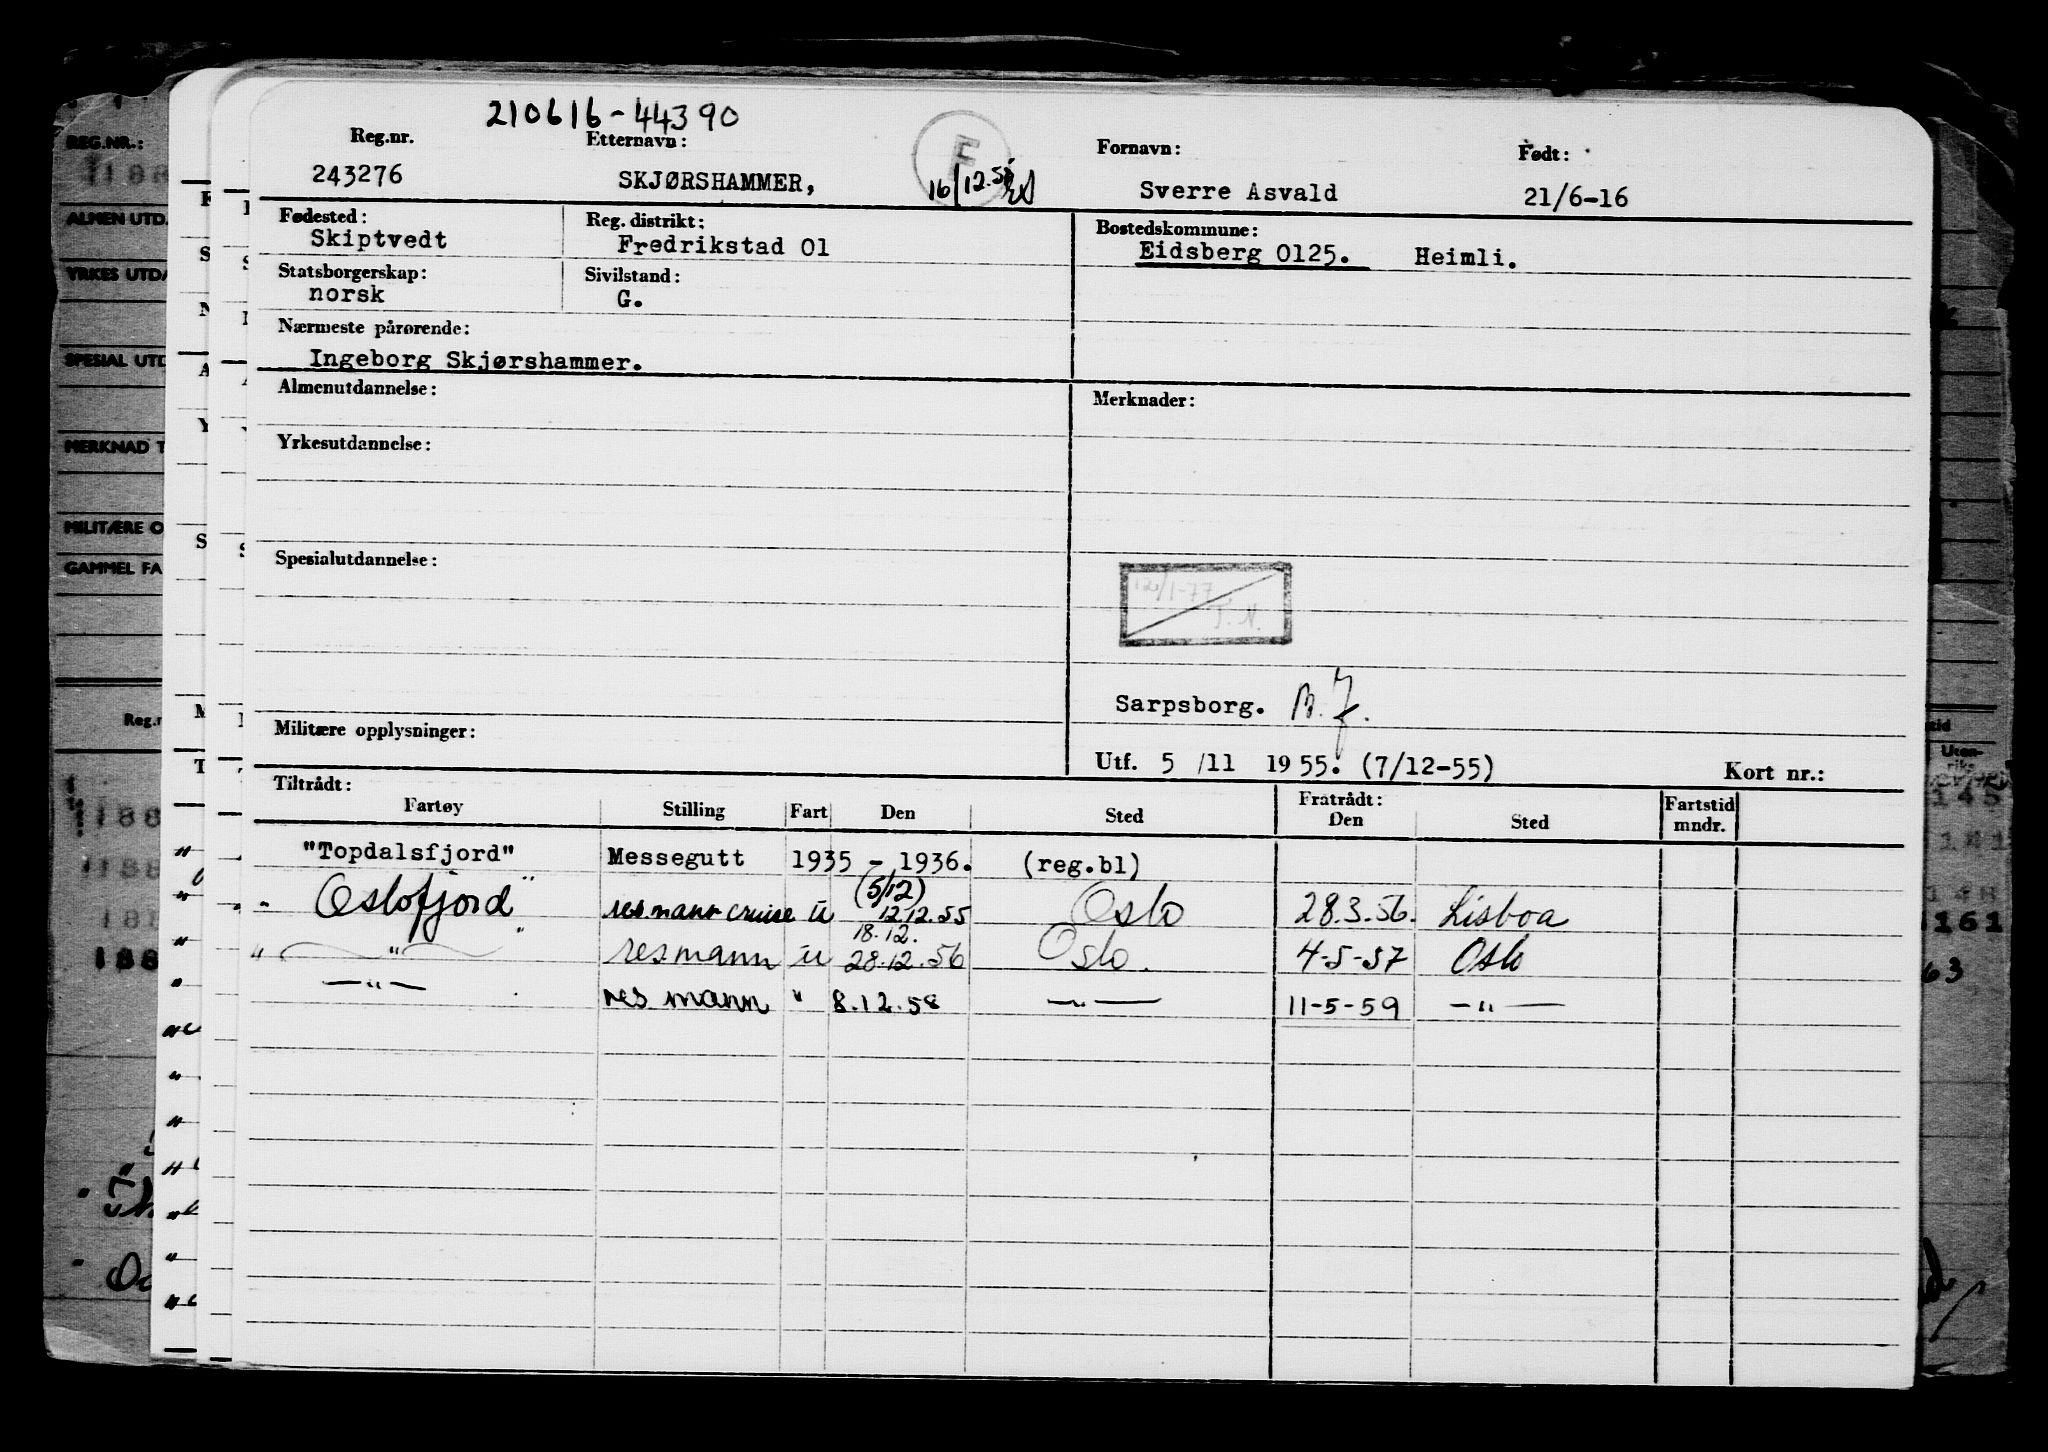 210616-44390
Reg.nr. Etternavn: Fornavn: Født:
243276 SKJØRSHAMMER, F 16/12.55 Sverre Asvald 21/6-16
Fødested: Reg. distrikt: Bostedskommune:
Skiptvedt Fredrikstad 01 Eidsberg 0125. Heimli.
Statsborgerskap: Sivilstand:
norsk G.
Nærmeste pårørende:
Ingeborg Skjørshammer.
Almenutdannelse: Merknader:
Yrkesutdannelse:
Spesialutdannelse:
Sarpsborg.
Militære opplysninger:
Utf. 5 /11 1955. (7/12-55) Kort nr.:
Tiltrådt: Fratrådt:
Fartøy Stilling Fart Den Sted Den Sted Fartstid mndr.
"Topdalsfjord" Messegutt 1935 - 1936. (reg.bl)
(5/12)
" Oslofjord " resmann cruise u 12.12.55 Oslo 28.3.56. Lisboa
18.12.
" " " resmann u 28.12.56 Oslo. 4-5-57 Oslo
—"— res mann " 8.12.58 —"— 11-5-59 —"—
REG.NR.:
ALMEN UTD.
YRKES UTDA
SPESIAL UTD
MERKNAD T
MILITÆRE O
GAMMEL FA